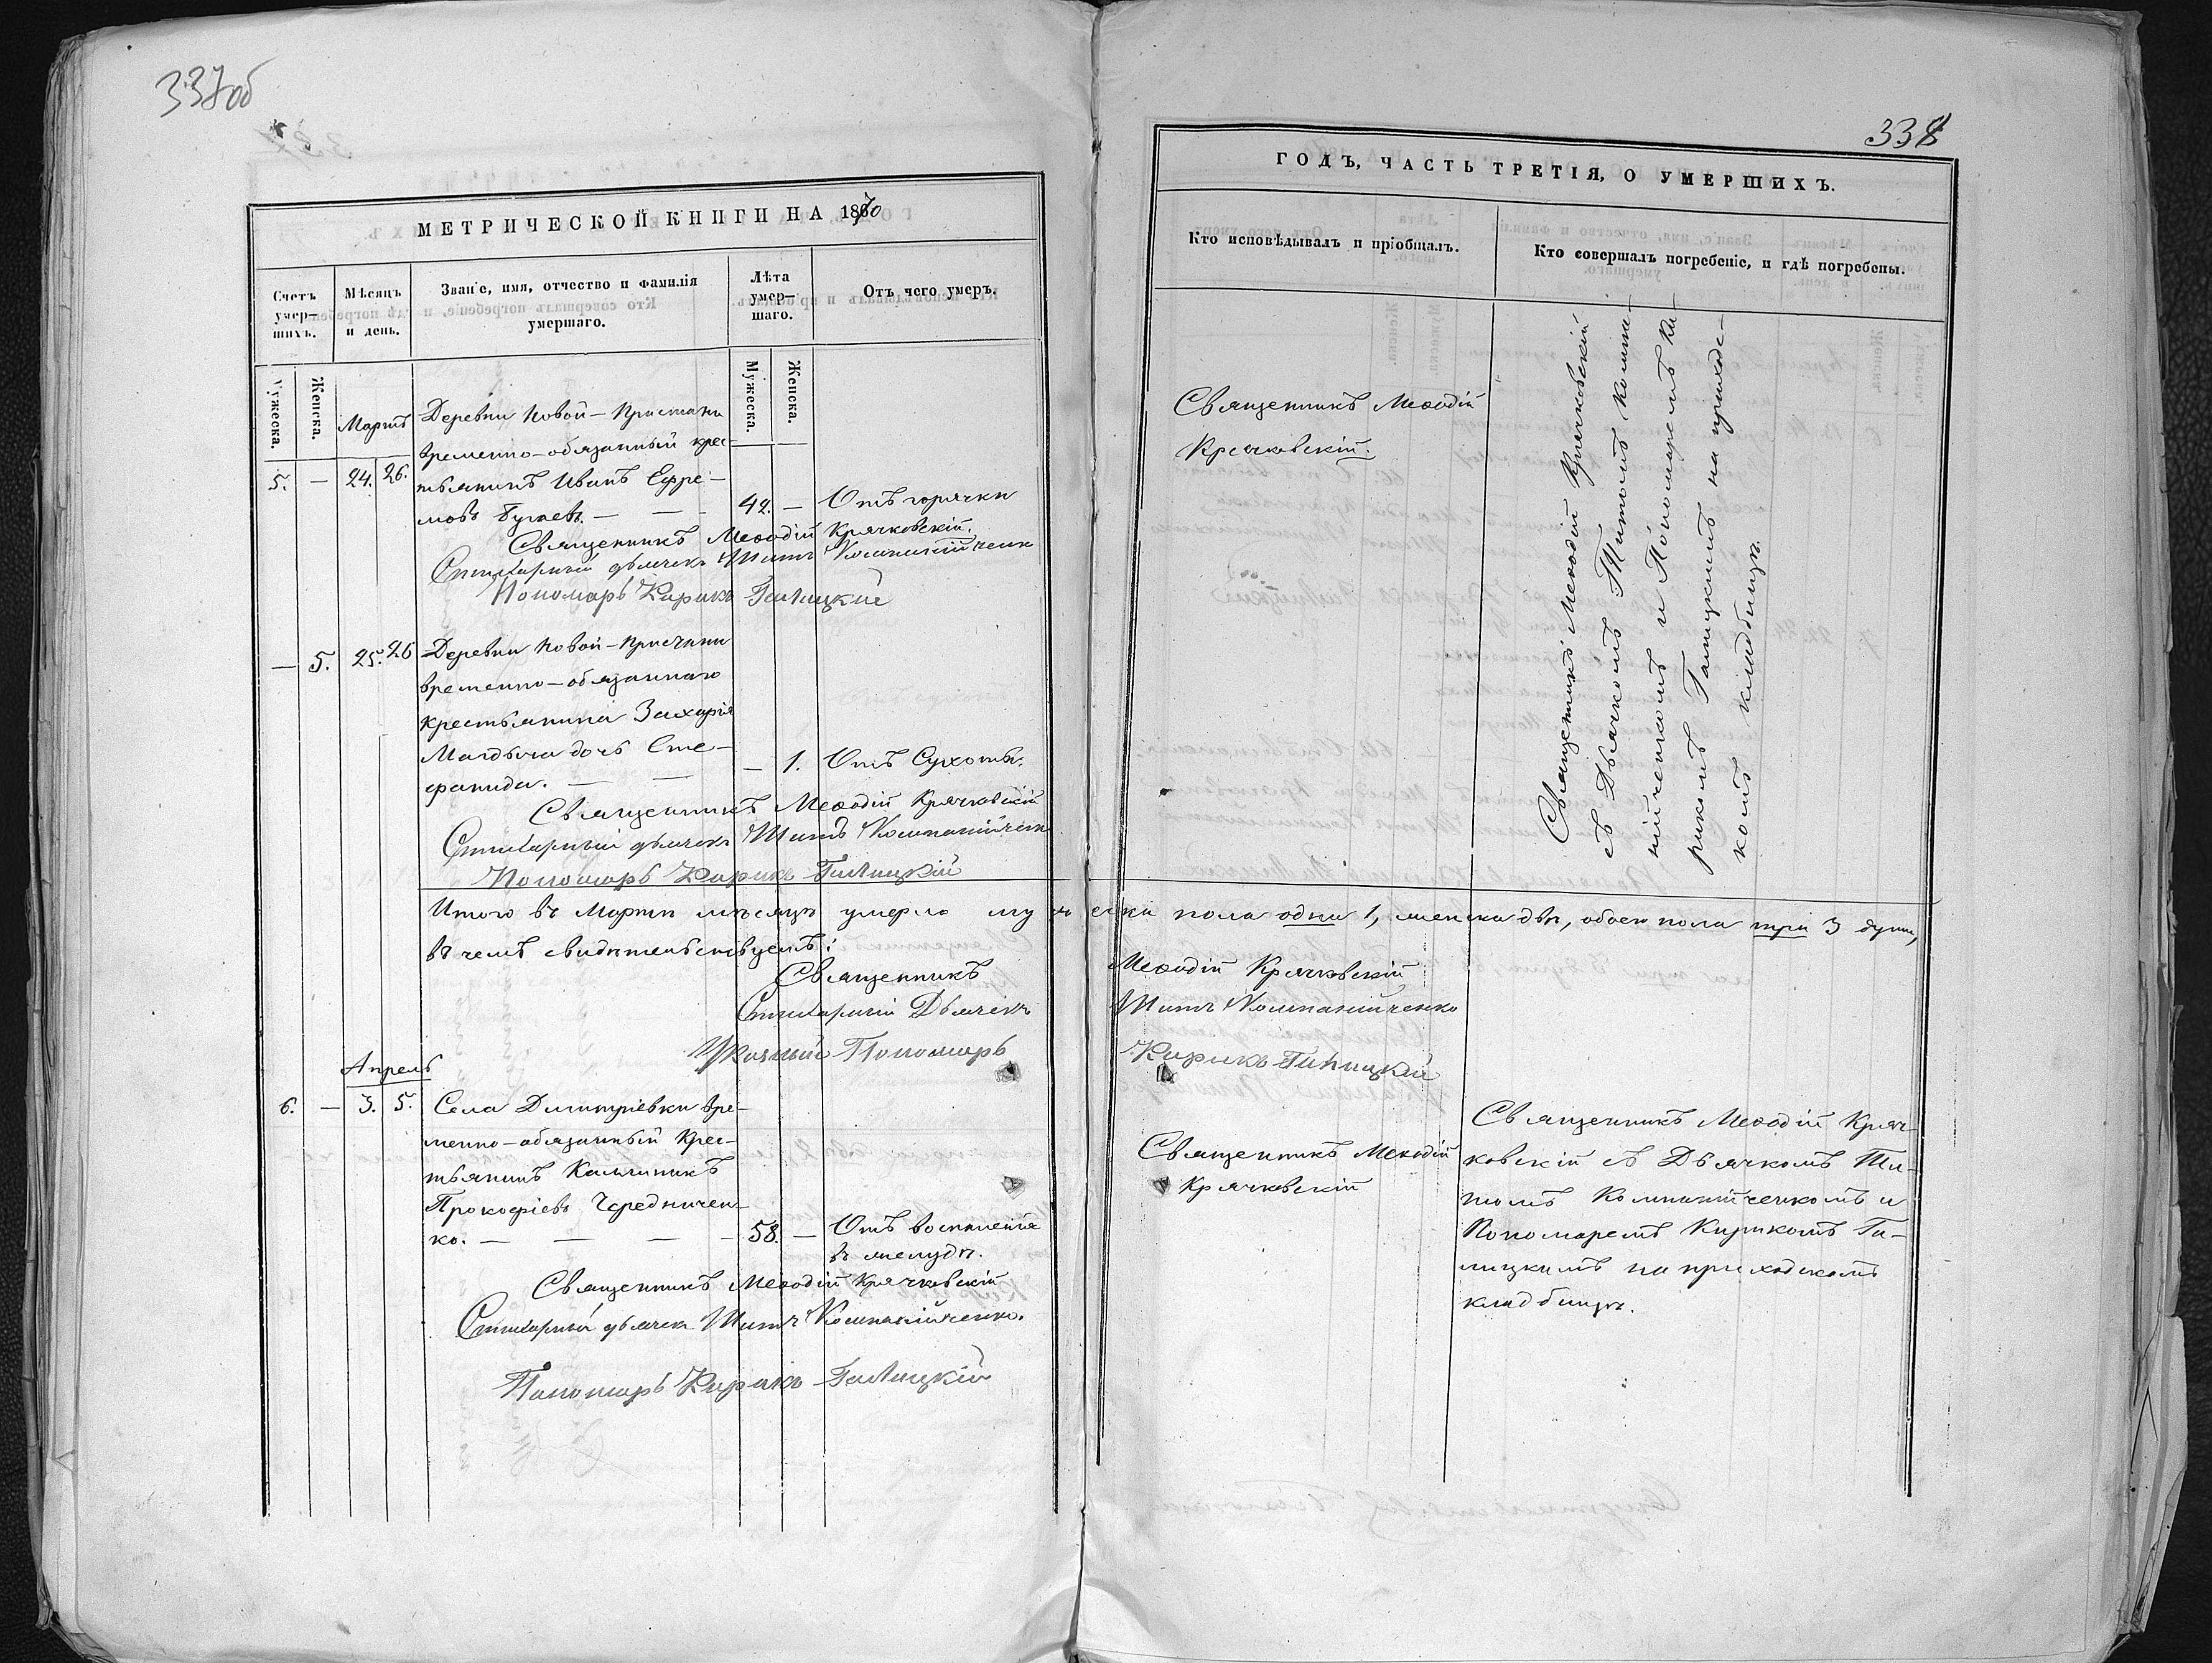 337об
МЕТРИЧЕСКОЙ КНИГИ НА 1870
Счетъ умер-шихъ.
Мѣсяцъ и день.
Званіе, имя, отчество и фамилія умершаго.
Лѣта умер-шаго.
Отъ чего умеръ.
Мужеска.
Женска.
Мужеска.
Женска.
Мартъ
Деревни Новой-Пристани
временно-обязанный крес-
5. — 24. 26. тьянинъ Иванъ Ефре-
мовъ — — — 42. — Отъ горячки
Священникъ Меѳодій Крячковскій.
Стихарный дьячекъ Титъ Компанійченко
Пономарь Кирикъ Галицкій
— 5. 25. 26 Деревни Новой-Пристани
временно-обязаннаго
крестьянина Захарія
дочь Сте-
фанида. — — — 1. Отъ Сухоты.
Священникъ Меѳодій Крячковскій
Стихарный дьячекъ Титъ Компанійченко
Пономарь Кирикъ Галицкій
Итого въ Мартѣ мѣсяцѣ умерло мужеска пола одна 1, женска двѣ, обоего пола три 3 души,
въ чемъ свидѣтельствуемъ:
Священникъ Меѳодій Крячковскій
Стихарный Дьячекъ Титъ Компанійченко
Указный Пономарь Кирикъ Галицкій
Апрель
6. — 3. 5. Села Димитріевки вре-
менно-обязанный Крес-
тьянинъ Каллиникъ
Прокофіевъ Чередничен-
ко. — — — — 58. — Отъ воспаленія
въ желудкѣ.
Священникъ Меѳодій Крячковскій
Стихарный дьячекъ Титъ Компанійченко.
Пономарь Кирикъ Галицкій
338
ГОДЪ, ЧАСТЬ ТРЕТІЯ, О УМЕРШИХЪ.
Кто исповѣдывалъ и пріобщалъ.
Кто совершалъ погребеніе, и гдѣ погребены.
Священникъ Меѳодій
Крячковскій.
Священникъ Меѳодій Крячковскій
съ Дьячкомъ Титомъ Компа-
нійченкомъ и Пономаремъ Ки-
рикомъ Галицкимъ на приходс-
комъ кладбищѣ.
Священникъ Меѳодій
Крячковскій
Священникъ Меѳодій Кряч-
ковскій съ Дьячкомъ Ти-
томъ Компанійченкомъ и
Пономаремъ Кирикомъ Га-
лицкимъ на приходскомъ
кладбищѣ.